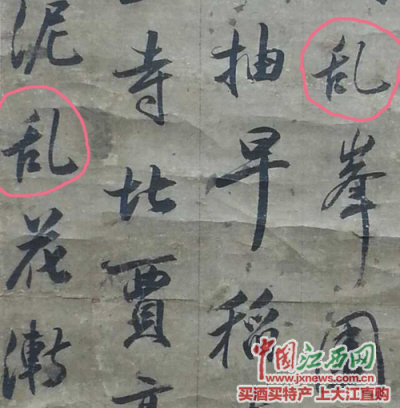 乱峯圍
抽早稻
寺北賈
泥乱花漸
中国江西网
www.jxnews.com.cn
买酒买特产 上大江直购